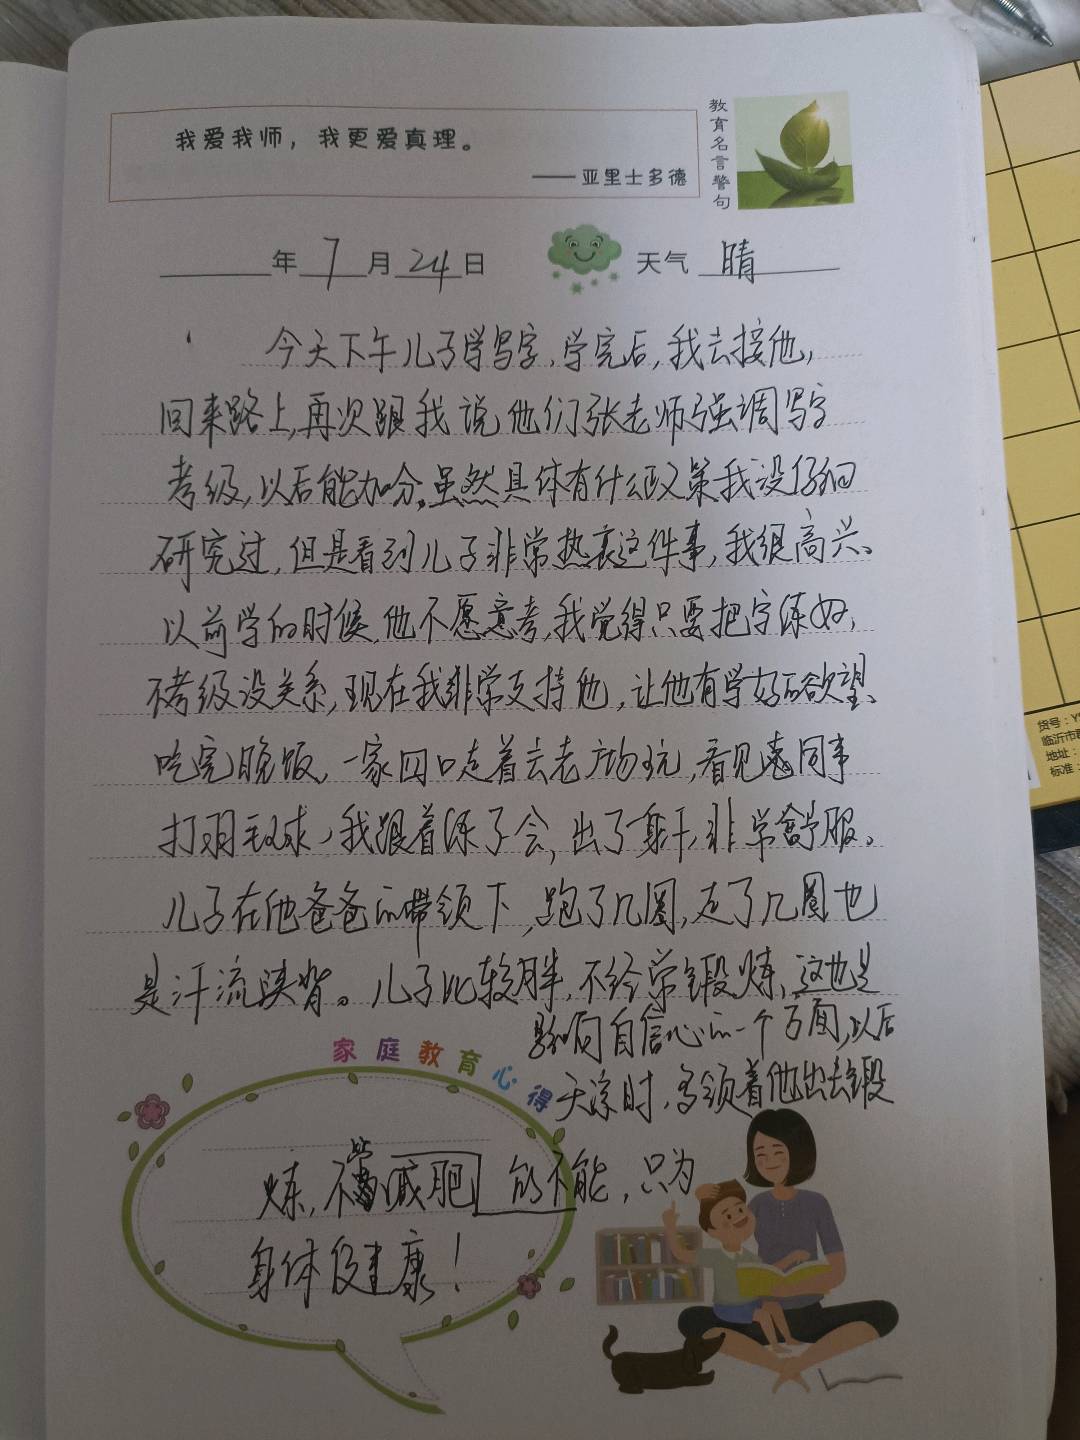 我爱我师，我更爱真理。
——亚里士多德
教育名言警句
年 7 月 24 日 天气 晴
今天下午儿子学写字，学完后，我去接他，
回来路上，再次跟我说他们张老师强调写字
考级，以后能加分。虽然具体有什么政策我没仔细
研究过，但是看到儿子非常热衷这件事，我很高兴。
以前学的时候，他不愿意考，我觉得只要把字练好，
不考级没关系，现在我非常支持他，让他有学好的欲望。
吃完晚饭，一家四口走着去老广场玩，看见同事
打羽毛球，我跟着练了会，出了身汗，非常舒服。
儿子在他爸爸的带领下，跑了几圈，走了几圈也
是汗流浃背。儿子比较胖，不经常锻炼，这也是
影响自信心的一个方面，以后
天凉时，多领着他出去锻
家庭教育心得
炼，不管减肥能不能，只为
身体健康！
货号：Y
临沂市
地址：
标准：